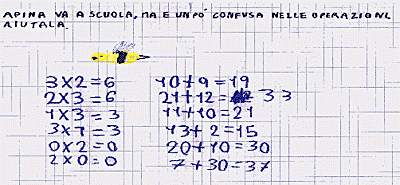 APINA VA A SCUOLA, MA E UN PO' CONFUSA NELLE OPERAZIONI,
AIUTALA.
3X2=6 10+9=19
2X3=6 21+12= 33
1X3=3 11+10=21
3X1=3 13+2=15
0X2=0 20+10=30
2X0=0 7+30=37